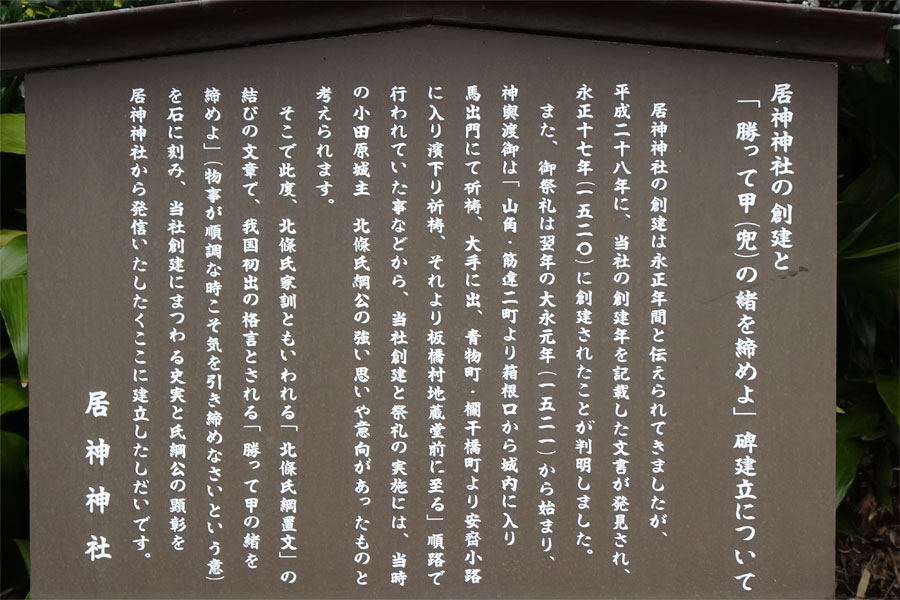 居神神社の創建と
「勝って甲(兜)の緒を締めよ」碑建立について
居神神社の創建は永正年間と伝えられてきましたが、
平成二十八年に、当社の創建年を記載した文書が発見され、
永正十七年(一五二〇)に創建されたことが判明しました。
また、御祭礼は翌年の大永元年(一五二一)から始まり、
神輿渡御は「山角・筋違二町より箱根口から城内に入り
馬出門にて祈祷、大手に出、青物町・欄干橋町より安齋小路
に入り濱下り祈祷、それより板橋村地蔵堂前に至る」順路で
行われていた事などから、当社創建と祭礼の実施には、当時
の小田原城主 北條氏綱公の強い思いや意向があったものと
考えられます。
そこで此度、北條氏家訓ともいわれる「北條氏綱置文」の
結びの文章で、我国初出の格言とされる「勝って甲の緒を
締めよ」(物事が順調な時こそ気を引き締めなさいという意)
を石に刻み、当社創建にまつわる史実と氏綱公の顕彰を
居神神社から発信いたしたくここに建立したしだいです。
居神神社